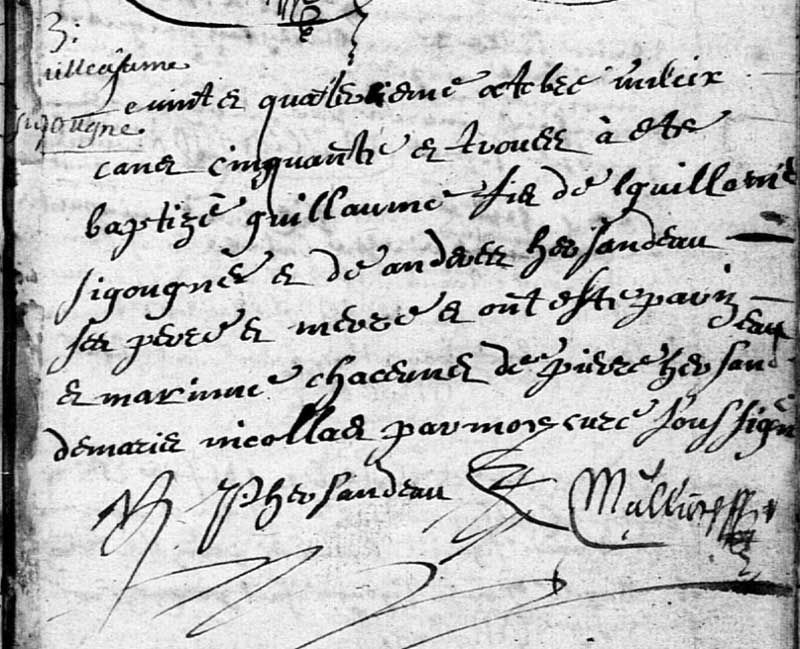 3:
Sigougne
e vint et quatriesme octobre mil six
cans cinquante et trouees à ete
baptizé guillaume fis de Guillame
sigougne et de andrees hersandeau
ses pere et mere et ont este parin
et marinne chaceunes de pierre hersandeau
de marie nicollas par moy curé soussigné
P hersandeau